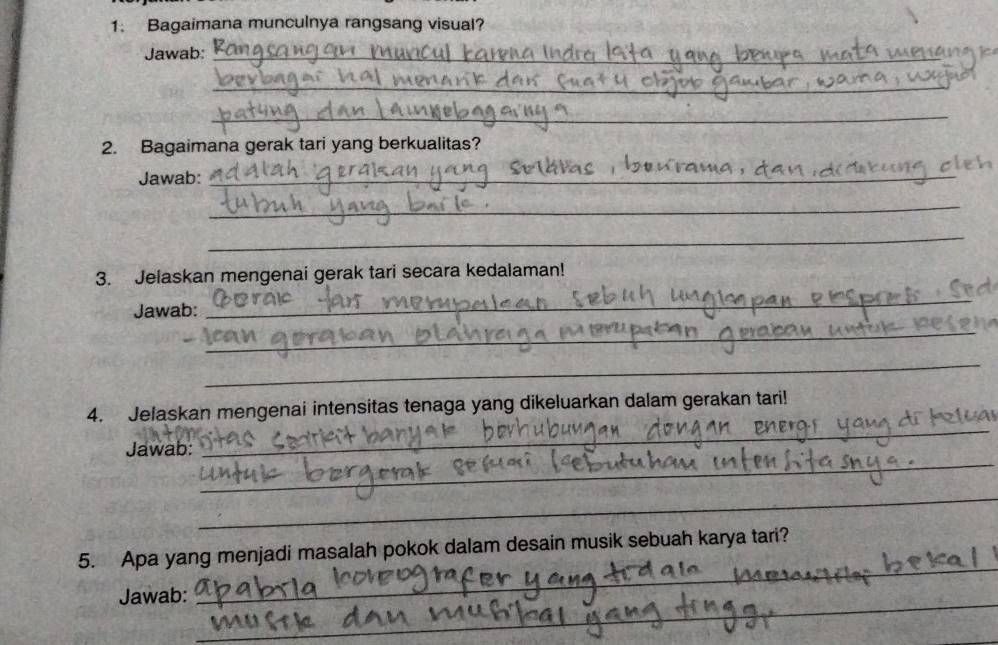 1. Bagaimana munculnya rangsang visual?
Jawab: Rangsangan muncul karena indra kita yang berupa mata menangka
berbagai hal menarik dari suatu objek gambar, warna, wujud
patung dan lainsebagainya
2. Bagaimana gerak tari yang berkualitas?
Jawab: adalah gerakan yang selaras, berirama, dan didukung oleh
tubuh yang baik.
3. Jelaskan mengenai gerak tari secara kedalaman!
Jawab: Gerak tari merupakan sebuh ungkapan ekspresi. Sed
-kan gerakan olahraga merupakan gerakan untuk
4. Jelaskan mengenai intensitas tenaga yang dikeluarkan dalam gerakan tari!
Jawab: intensitas sedikit banyak berhubungan dengan energi yang di keluar
untuk bergerak sesuai kebutuhan intensitasnya.
5. Apa yang menjadi masalah pokok dalam desain musik sebuah karya tari?
Jawab: apabila koreografer yang tidak bekal
musik dan musikal yang tinggi